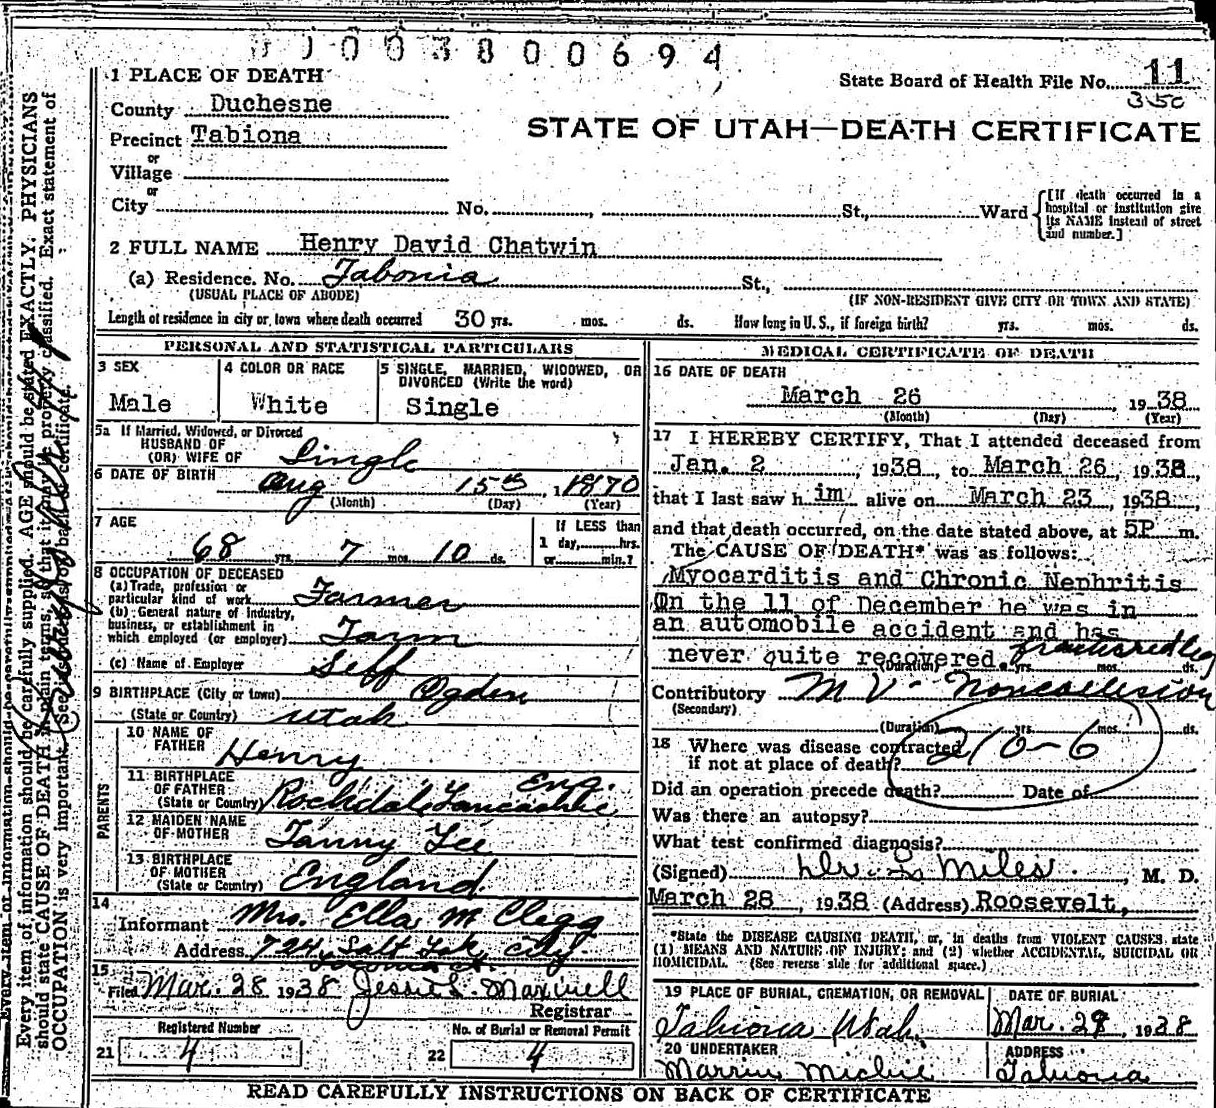 0003800694
State Board of Health File No. 11
350
1 PLACE OF DEATH
County Duchesne
STATE OF UTAH—DEATH CERTIFICATE
Precinct Tabiona
or
Village
or
City No. , St., Ward
[If death occurred in a hospital or institution give its NAME instead of street and number.]
2 FULL NAME Henry David Chatwin
(a) Residence. No. Tabonia St.,
(USUAL PLACE OF ABODE) (IF NON-RESIDENT GIVE CITY OR TOWN AND STATE)
Length of residence in city or town where death occurred 30 yrs. mos. ds. How long in U.S., if foreign birth? yrs. mos. ds.
PERSONAL AND STATISTICAL PARTICULARS
3 SEX
Male
4 COLOR OR RACE
White
5 SINGLE, MARRIED, WIDOWED, OR DIVORCED (Write the word)
Single
5a If Married, Widowed, or Divorced
HUSBAND OF
(OR) WIFE OF Single
6 DATE OF BIRTH Aug 15th, 1870
(Month) (Day) (Year)
7 AGE
68 yrs. 7 mos. 10 ds.
If LESS than
1 day, hrs.
or min.?
8 OCCUPATION OF DECEASED
(a) Trade, profession or
particular kind of work Farmer
(b) General nature of industry,
business, or establishment in
which employed (or employer) Farm
(c) Name of Employer Self
9 BIRTHPLACE (City or town) Ogden
(State or Country) Utah
PARENTS
10 NAME OF
FATHER Henry
11 BIRTHPLACE
OF FATHER
(State or Country) Rochdale, Lancashire Eng.
12 MAIDEN NAME
OF MOTHER Fanny Lee
13 BIRTHPLACE
OF MOTHER
(State or Country) England
14
Informant Mrs. Ella M Clegg
Address 724 Salt Lake City
15
Filed Mar. 28 1938 Jessie L. Maxwell
Registrar
Registered Number
21 4
No. of Burial or Removal Permit
22 4
MEDICAL CERTIFICATE OF DEATH
16 DATE OF DEATH
March 26, 1938
(Month) (Day) (Year)
17 I HEREBY CERTIFY, That I attended deceased from
Jan. 2, 1938, to March 26, 1938,
that I last saw him alive on March 23, 1938,
and that death occurred, on the date stated above, at 5P m.
The CAUSE OF DEATH* was as follows:
Myocarditis and Chronic Nephritis
On the 11 of December he was in
an automobile accident and has
never quite recovered. fractured leg
(Duration) yrs. mos. ds.
Contributory M V - Noncollision
(Secondary)
(Duration) yrs. mos. ds.
210-6
18 Where was disease contracted
if not at place of death?
Did an operation precede death? Date of
Was there an autopsy?
What test confirmed diagnosis?
(Signed) Dr. L Miles, M. D.
March 28, 1938 (Address) Roosevelt,
*State the DISEASE CAUSING DEATH, or, in deaths from VIOLENT CAUSES, state
(1) MEANS AND NATURE OF INJURY; and (2) whether ACCIDENTAL, SUICIDAL OR
HOMICIDAL. (See reverse side for additional space.)
19 PLACE OF BURIAL, CREMATION, OR REMOVAL
Tabiona Utah.
DATE OF BURIAL
Mar. 28, 1938
20 UNDERTAKER
ADDRESS
Tabiona
READ CAREFULLY INSTRUCTIONS ON BACK OF CERTIFICATE
Every item of information should be carefully supplied. AGE should be stated EXACTLY. PHYSICIANS
should state CAUSE OF DEATH in plain terms, so that it may be properly classified. Exact statement of
OCCUPATION is very important. See instructions on back of certificate.